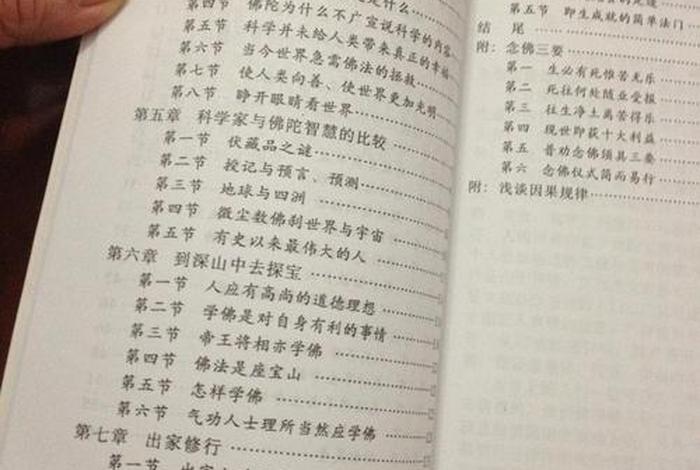 是什么
第四节 佛陀为什么不广宣说科学的内容
第五节 科学并未给人类带来真正的幸福
第六节 当今世界急需佛法的拯救
第七节 使人类向善、使世界更加光明
第八节 睁开眼睛看世界
第五章 科学家与佛陀智慧的比较
第一节 伏藏品之谜
第二节 授记与预言、预测
第三节 地球与四洲
第四节 微尘数佛刹世界与宇宙
第五节 有史以来最伟大的人
第六章 到深山中去探宝
第一节 人应有高尚的道德理想
第二节 学佛是对自身有利的事情
第三节 帝王将相亦学佛
第四节 佛法是座宝山
第五节 怎样学佛
第六节 气功人士理所当然应学佛
第七章 出家修行
第一节
第五节 即生成就的简单法门
结 尾
附：念佛三要
第一 生必有死惟苦无乐
第二 死往何处随业受报
第三 往生净土离苦得乐
第四 现世即获十大利益
第五 普劝念佛须具三要
第六 念佛仪式简而易行
附：浅谈因果规律